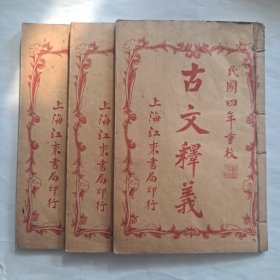 民國四年重校
古文釋義
上海江東書局印行
上海江東書局印行
上海江東書局印行